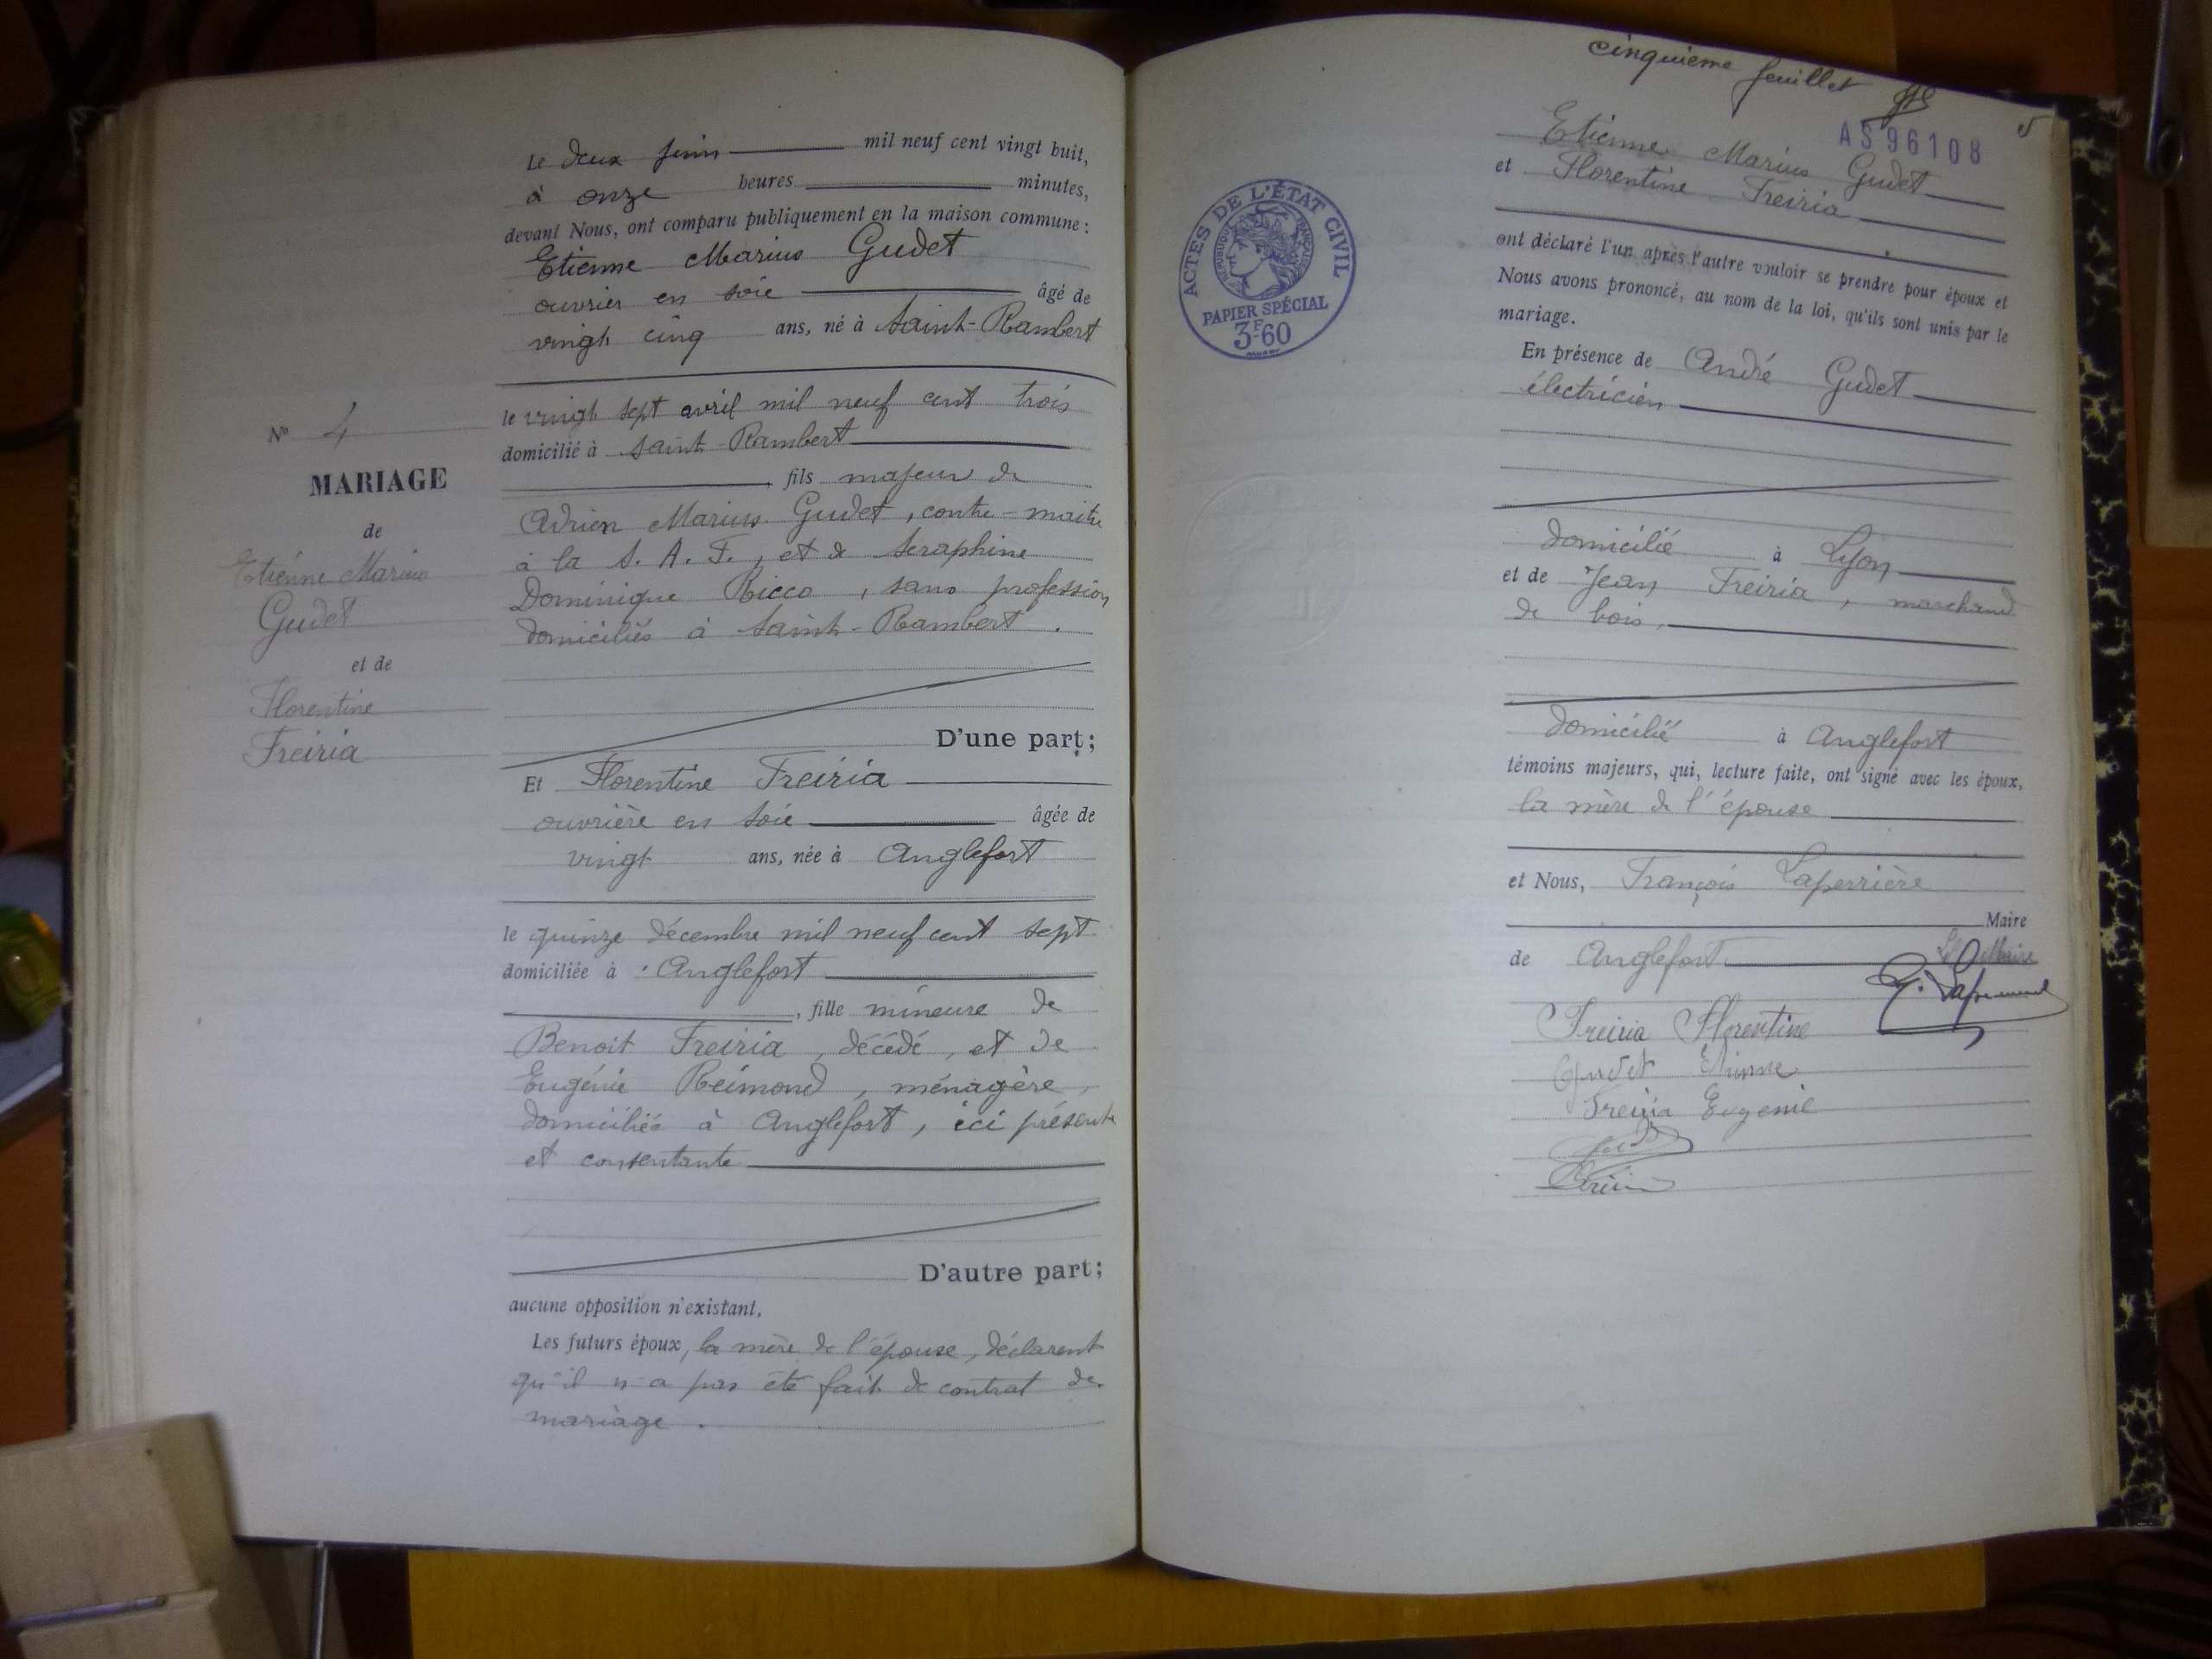 Le deux juin mil neuf cent vingt huit,
à onze heures minutes,
devant Nous, ont comparu publiquement en la maison commune :
Etienne Marius Gudet
ouvrier en soie âgé de
vingt cinq ans, né à Saint-Rambert
le vingt sept avril mil neuf cent trois
domicilié à Saint-Rambert
, fils majeur de
Adrien Marius Gudet, contre-maitre
à la S. A. F., et de Seraphine
Dominique Ricco, sans profession
domiciliés à Saint-Rambert.
D'une part;
Et Florentine Freiria
ouvrière en soie âgée de
vingt ans, née à Anglefort
le quinze décembre mil neuf cent sept
domiciliée à Anglefort
, fille mineure de
Benoit Freiria, décédé, et de
Eugénie Reimond, ménagère,
domiciliés à Anglefort, ici présente
et consentante
D'autre part;
aucune opposition n'existant,
Les futurs époux, la mère de l'épouse, déclarent
qu'il n'a pas été fait de contrat de
mariage.
N° 4
MARIAGE
de
Etienne Marius
Gudet
et de
Florentine
Freiria
cinquième feuillet
5
AS96108
Etienne Marius Gudet
et Florentine Freiria
ont déclaré l'un après l'autre vouloir se prendre pour époux et
Nous avons prononcé, au nom de la loi, qu'ils sont unis par le
mariage.
En présence de André Gudet
électricien
domicilié à Lyon
et de Jean Freiria, marchand
de bois,
domicilié à Anglefort
témoins majeurs, qui, lecture faite, ont signé avec les époux,
la mère de l'épouse
et Nous, François Laperrière
Maire
de Anglefort
Le Maire
Freiria Florentine
Gudet Etienne
Freiria Eugenie
ACTES DE L'ÉTAT CIVIL
RÉPUBLIQUE FRANÇAISE
PAPIER SPÉCIAL
3F60